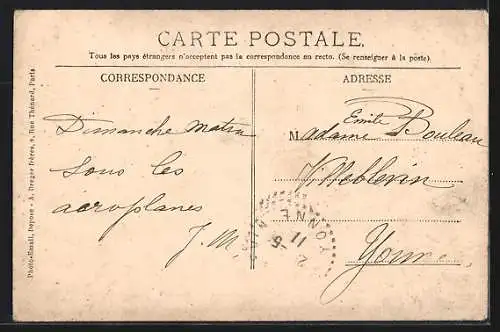 CARTE POSTALE.
Tous les pays étrangers n'acceptent pas la correspondance au recto. (Se renseigner à la poste).
CORRESPONDANCE
Dimanche matin
sous les
aeroplanes
J. M.
ADRESSE
Emile
Madame Bouleau
Villeblevin
Yonne
YONNE
11
2 -6
Photo-Email, Depose - A. Breger frères, 9, Rue Thénard, Paris